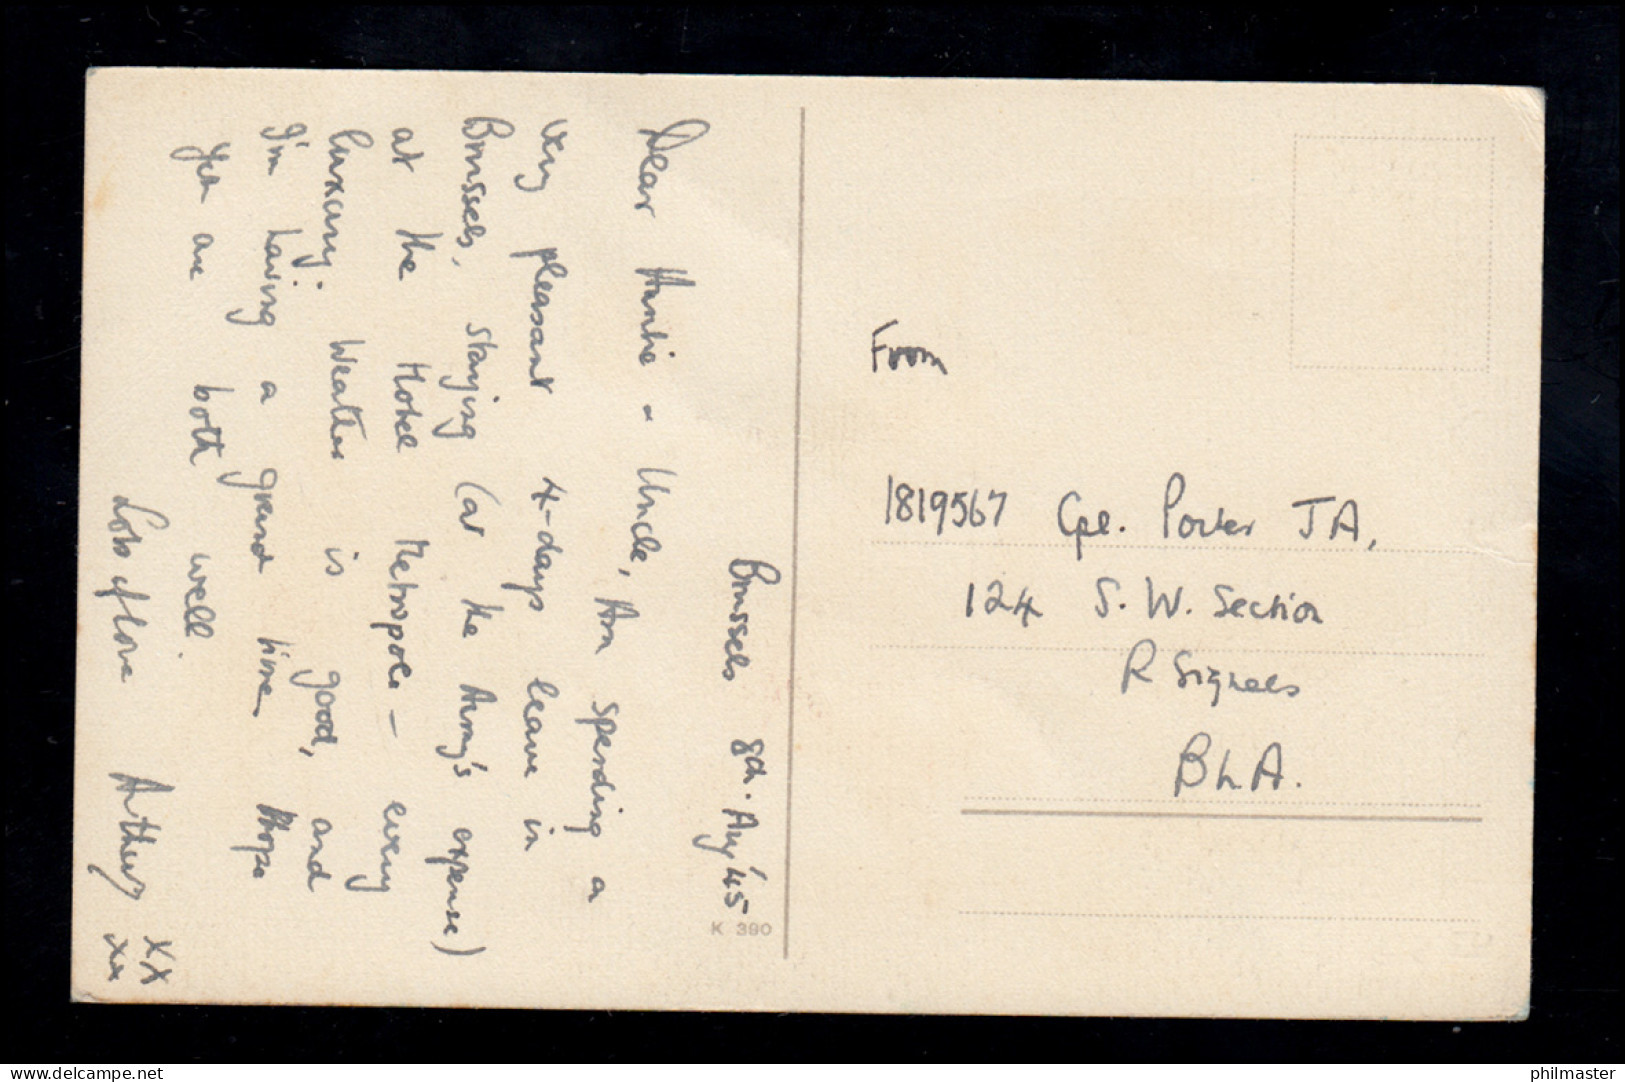 Brussels 8th. Aug '45
Dear Auntie & Uncle, Am spending a
very pleasant 4-days leave in
Brussels, staying (at the Army's expense)
at the Hotel Metropole - every
luxury. Weather is good, and
I'm having a grand time. Hope
you are both well.
Lots of love Arthur xx
xx
K 390
From
1819567 Cpl. Porter J A,
124 S. W. Section
R Signals
B L A.
www.delcampe.net
philmaster